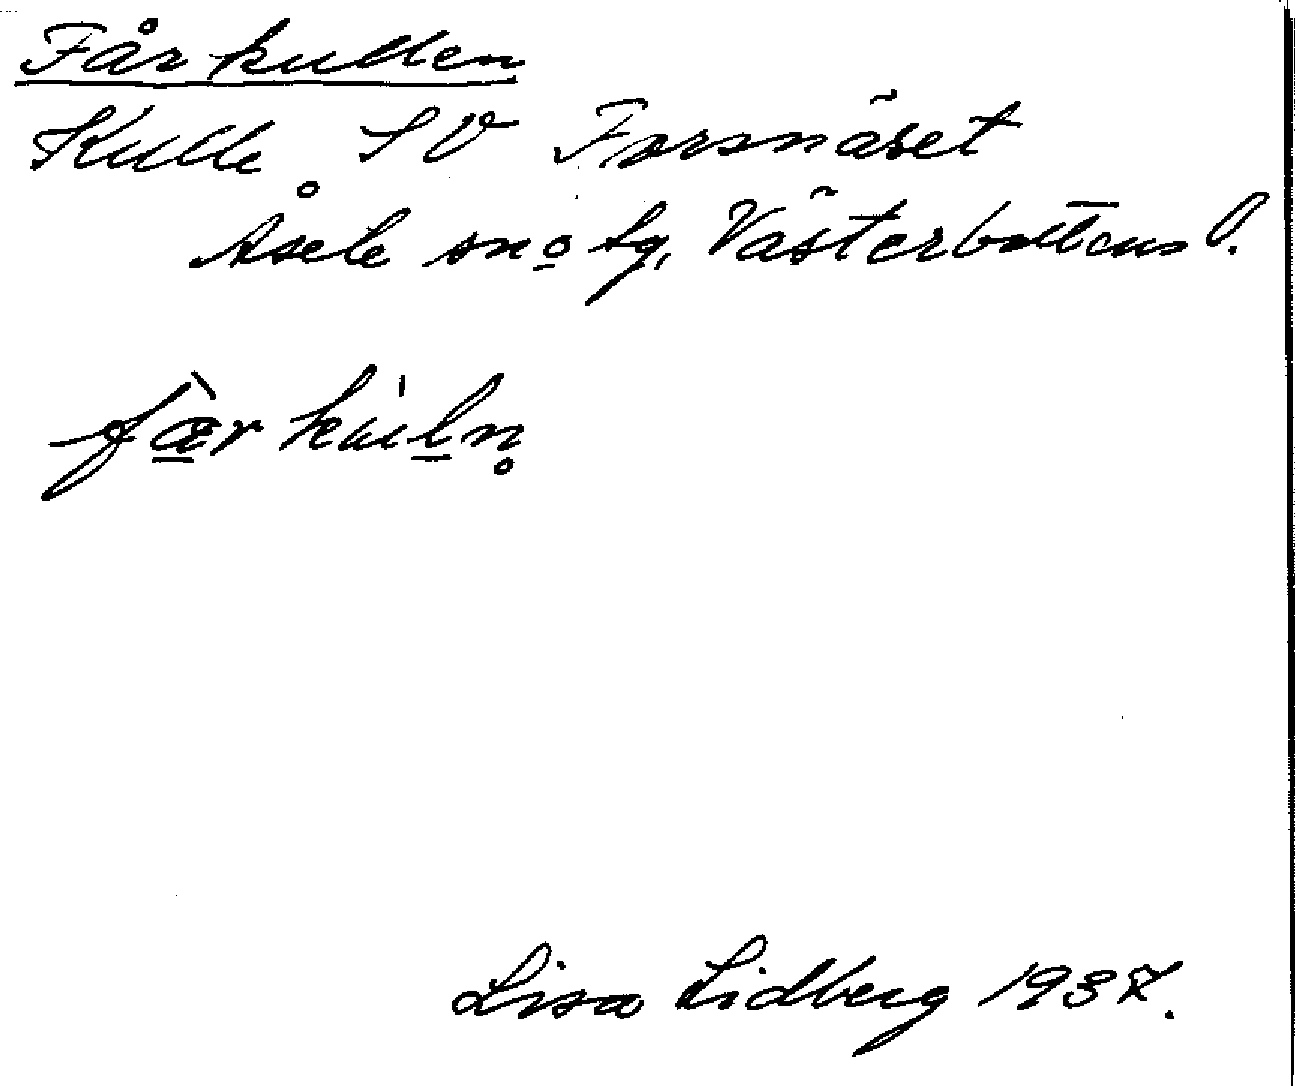 Fårkullen
Kulle SV Forsnäset
Åsele sn o tg, Västerbottens l.
fæ̀r kúln̥
Lisa Lidberg 1937.